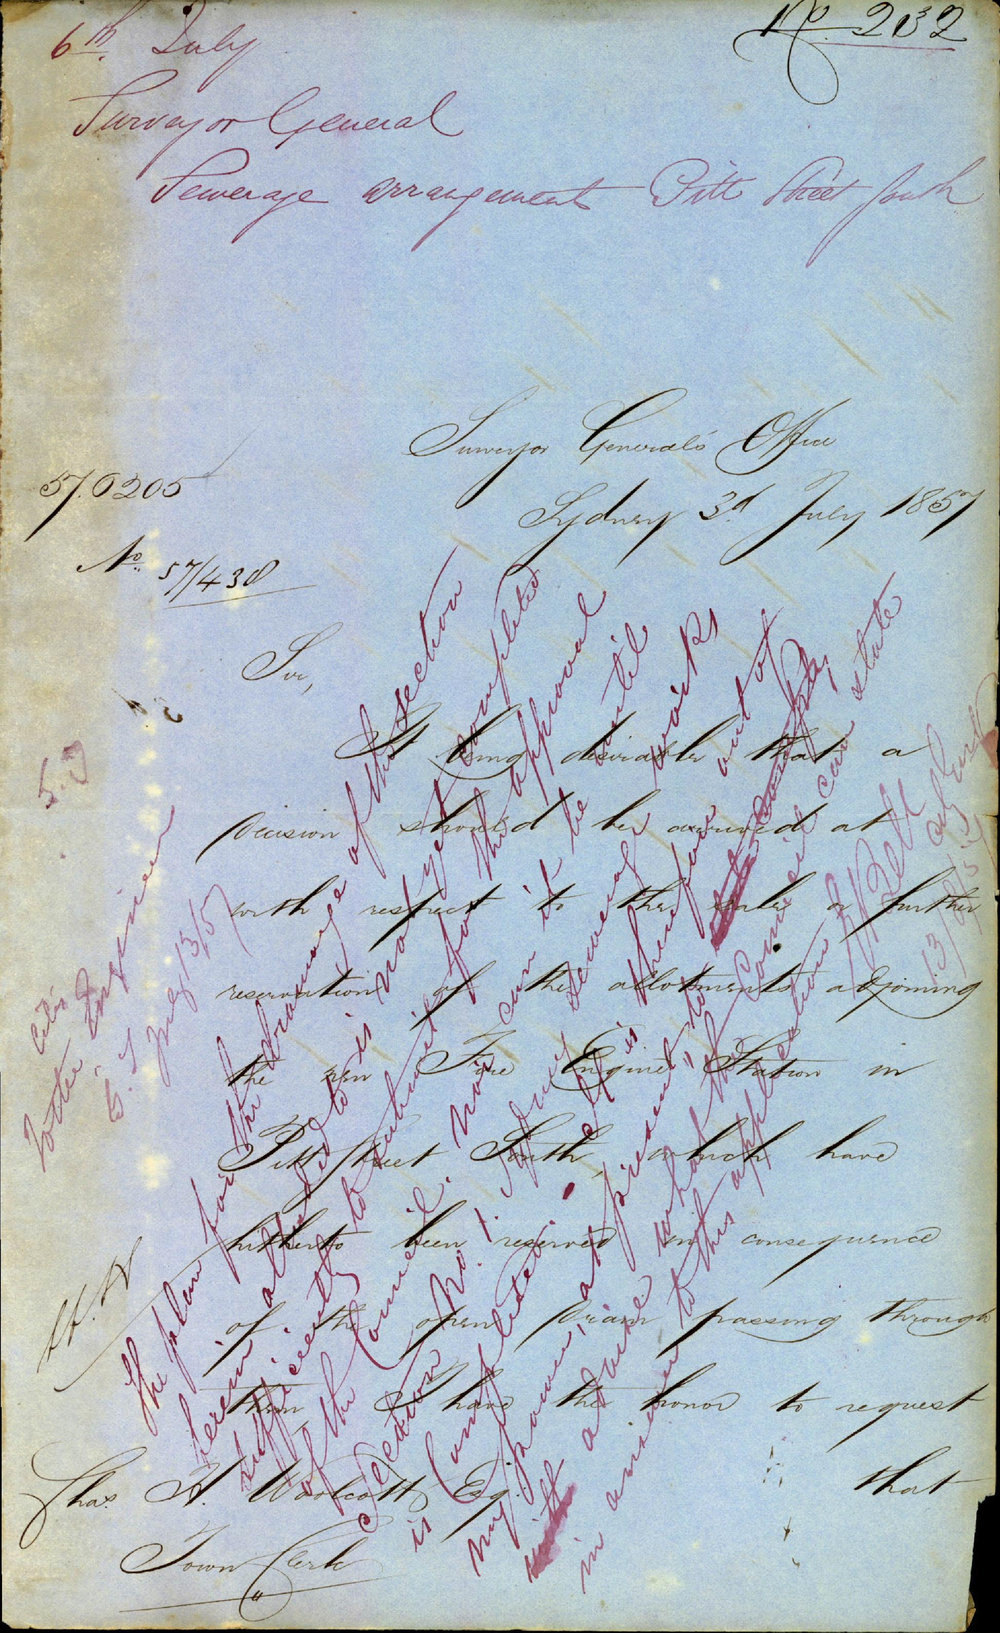 No. 232
6th July
Surveyor General
Sewerage arrangements Pitt Street South
Surveyor General's Office
Sydney 3d July 1857
57.0205
No. 57/438
Sir,
It being desirable that a
decision should be arrived at
with respect to the sale or further
reservation of the allotments adjoining
the new Fire Engine Station in
Pitt Street South, which have
hitherto been reserved in consequence
of the open drain passing through
them I have the honor to request
that
Chas. H. Woolcott Esq.
Town Clerk
City Engineer
July 13/57
The plan for the drainage of this section
herein alluded to is not yet completed
sufficiently to submit for the approval
of the Council. nor can it be until
Section No. 1 of our sewerage works
is Completed. It is therefore out of
my power, at present, to
advise what the Council can state
in answer to this application
Bell
City Engineer
13/7/57